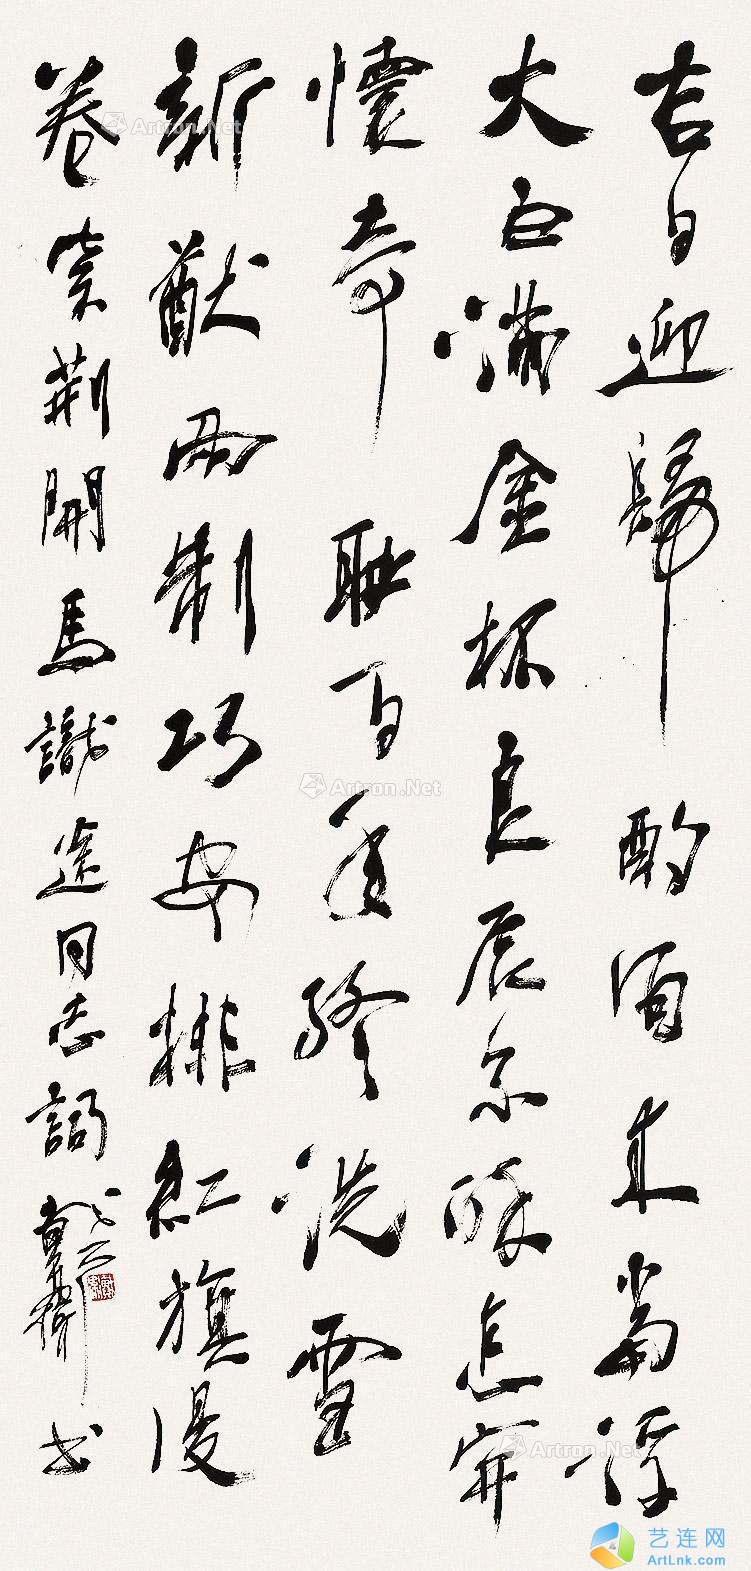 吉日迎歸酌酒來當浮
大白滿金杯良辰怎
懷奇恥百年終洗雪
新猷兩制巧安排紅旗漫
卷紫荊開馬識途同志詞戴衛書
Artron.Net
Artron.Net
Artron.Net
艺连网
ArtLnk.com